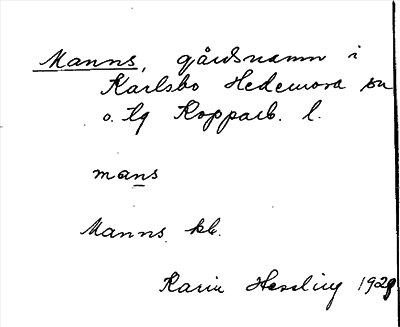 Manns, gårdsnamn i
Karlsbo Hedemora sn
o. tg Kopparb. l.
mans
Manns kb.
Karin Hessling 1928